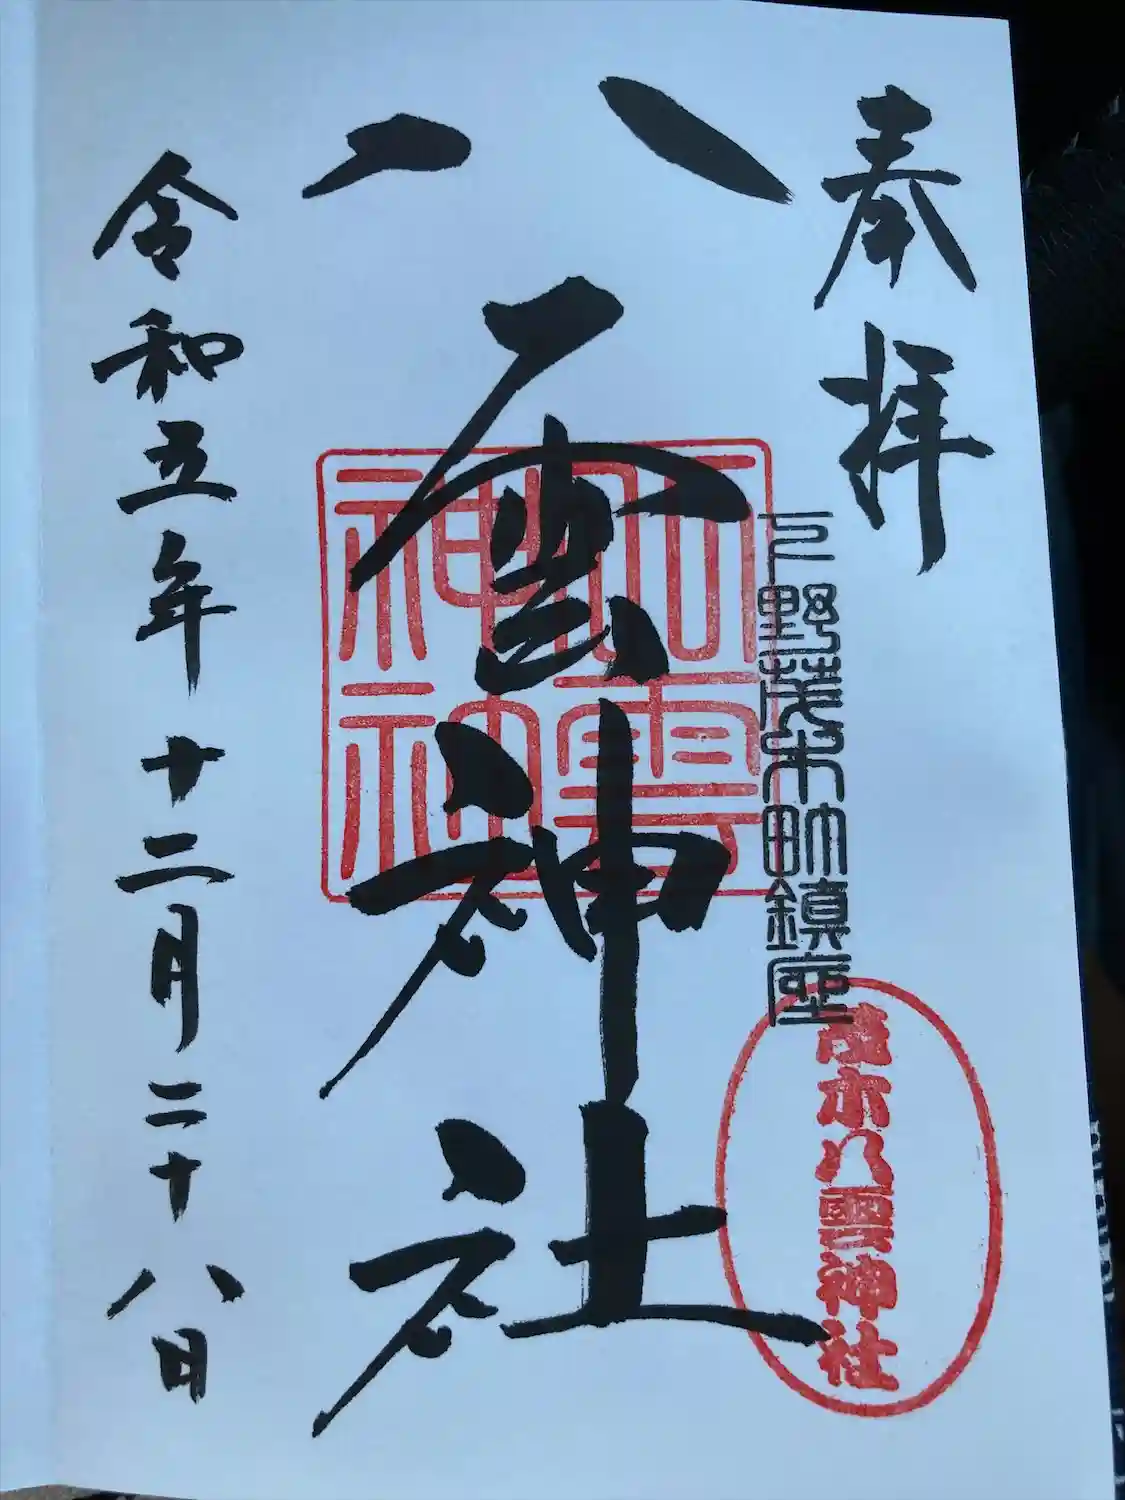 奉拝
下野茂木町鎮座
茂木八雲神社
八雲神社
八雲
神社
令和五年十二月二十八日